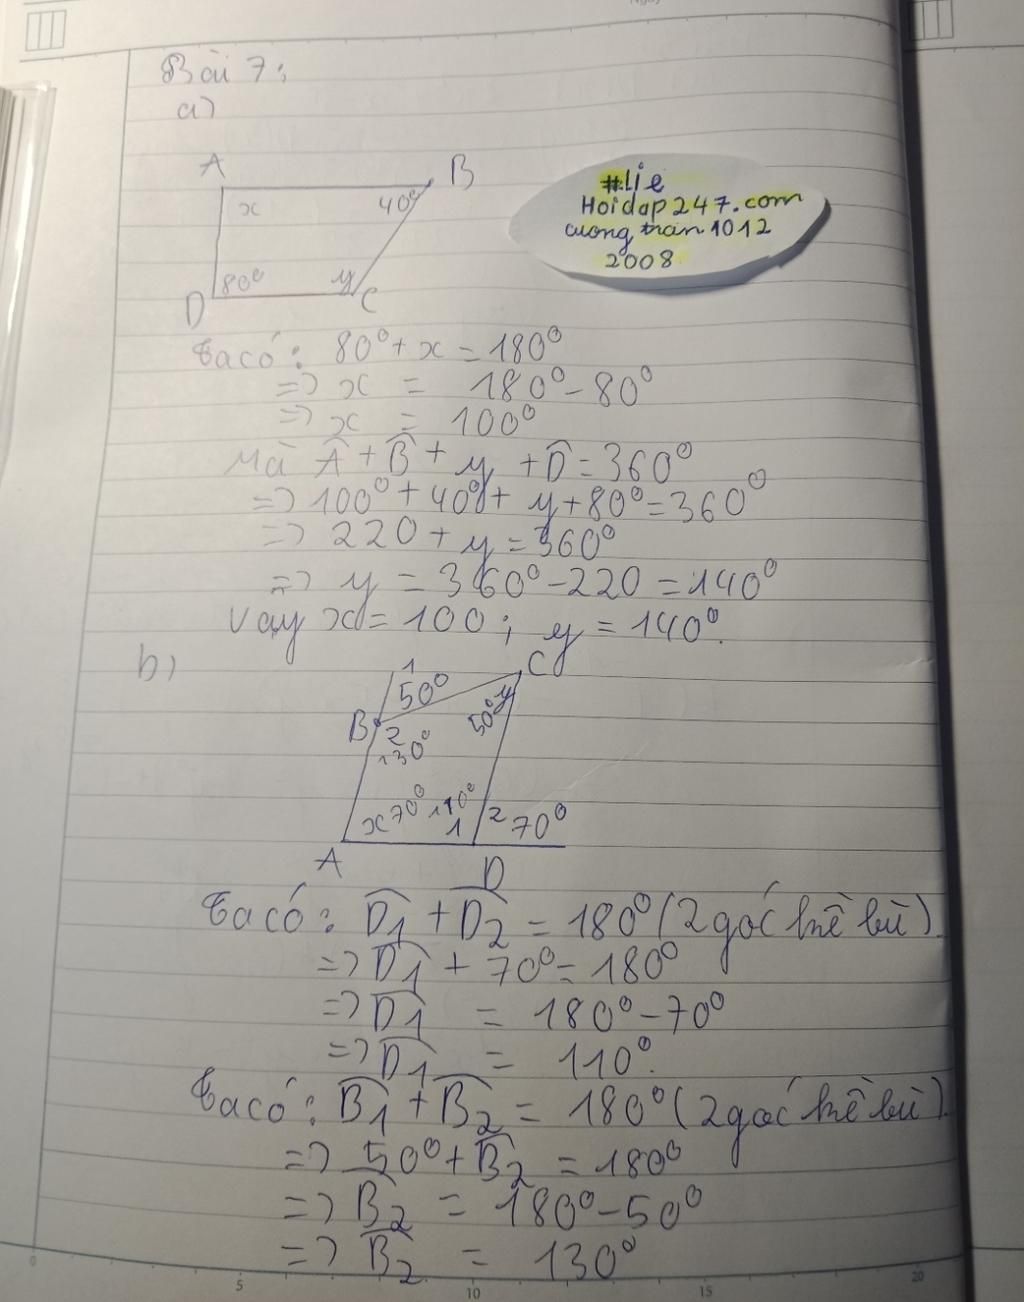 Bài 7:
a)
A
B
x
40°
80°
y
D
C
#lie
Hoidap247.com
cuongtran1012
2008
Ta có: 80° + x = 180°
=> x = 180° - 80°
=> x = 100°
Mà Â + B̂ + y + D̂ = 360°
=> 100° + 40° + y + 80° = 360°
=> 220 + y = 360°
=> y = 360° - 220 = 140°
Vậy x = 100; y = 140°.
b)
1
C
50°
B
2
130°
50° y
x 70° 110°
1
2 70°
A
D
Ta có: D̂1 + D̂2 = 180° (2 góc kề bù).
=> D̂1 + 70° = 180°
=> D̂1 = 180° - 70°
=> D̂1 = 110°.
Ta có: B̂1 + B̂2 = 180° (2 góc kề bù).
=> 50° + B̂2 = 180°
=> B̂2 = 180° - 50°
=> B̂2 = 130°
0 5 10 15 20